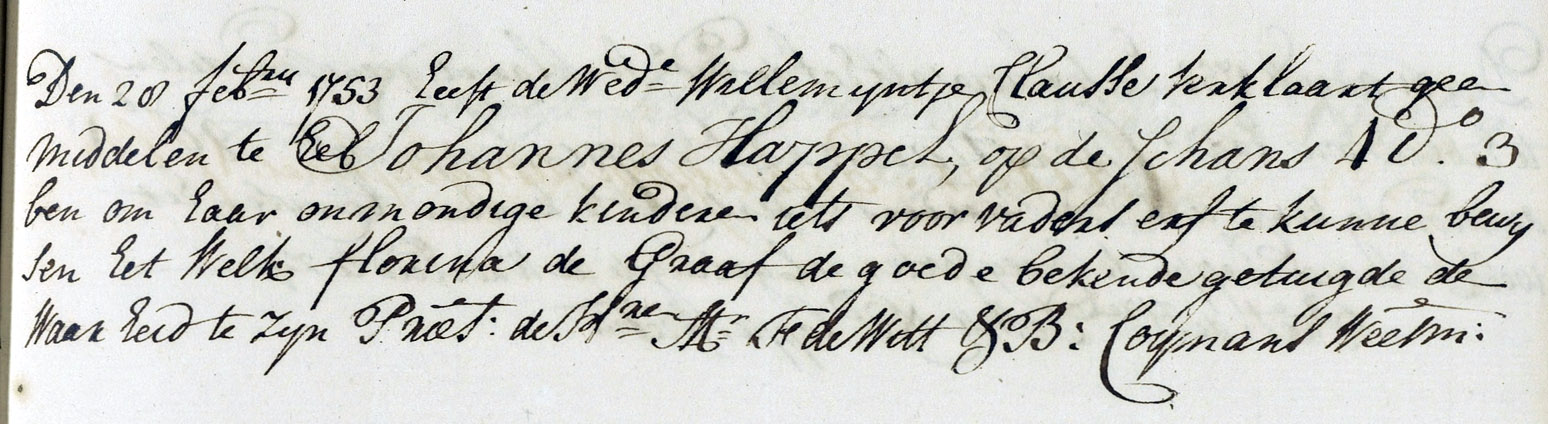 Den 28 febru 1753 Eeft de Wede Willemyntje Clausse verklaart geen
middelen te Eeb Johannes Happel, op de Schans 1 do. 3
ben om Eaar onmondige kinderen iets voor vaders erf te kunne bewy
sen Eet Welk florina de Graaf de goede bekende getuigde de
Waar Eeid te zyn Præs.t: de Hren Mr F de Witt & B: Coymans Weesm: